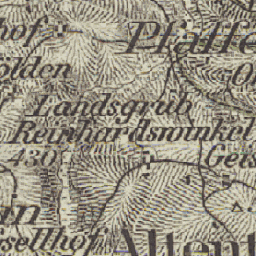 hof
Pfaffe
ölden
Landsgrub
Reinhardswinkel
430
Geis
sellhof
Altent